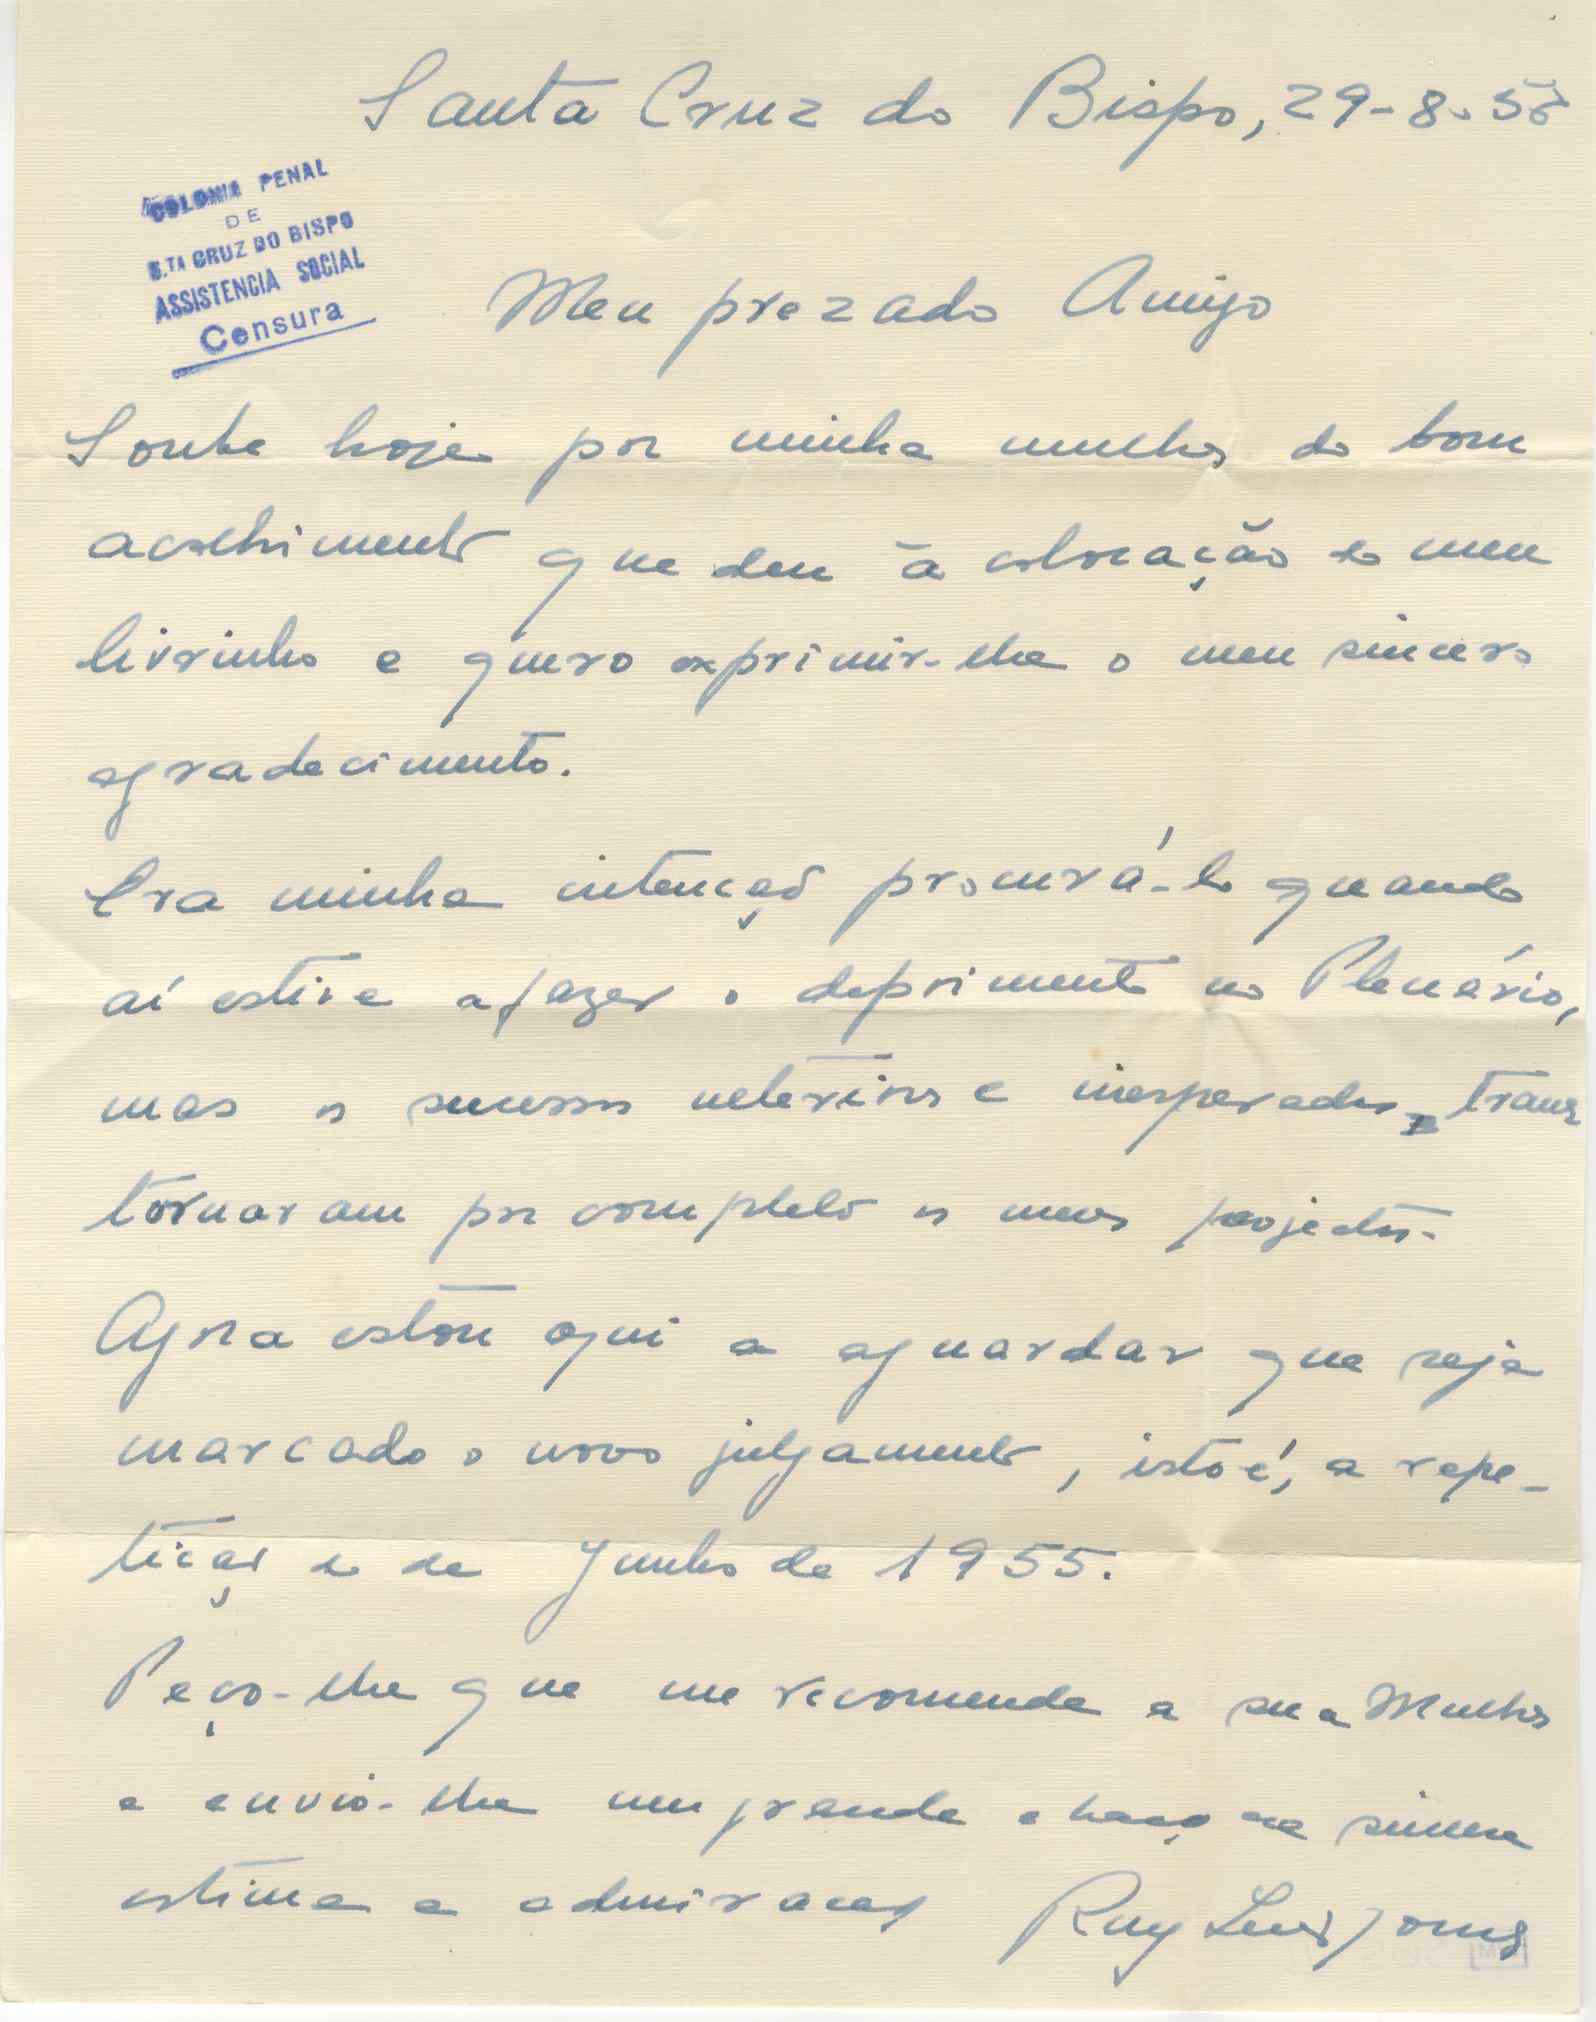 Santa Cruz do Bispo, 29-8-58
COLONIA PENAL
DE
S.TA CRUZ DO BISPO
ASSISTENCIA SOCIAL
Censura
Meu prezado Amigo
Soube hoje por minha mulher do bom
acolhimento que deu à colocação do meu
livrinho e quero exprimir-lhe o meu sincero
agradecimento.
Era minha intenção procurá-lo quando
aí estive a fazer o depoimento no Plenário,
mas os sucessos ulteriores e inesperados trans
tornaram por completo os meus projectos.
Agora estou aqui a aguardar que seja
marcado o novo julgamento, isto é, a repe-
tição do de Junho de 1955.
Peço-lhe que me recomende a sua Mulher
e envio-lhe um grande abraço de sincera
estima e admiração Ruy Luis Gomes